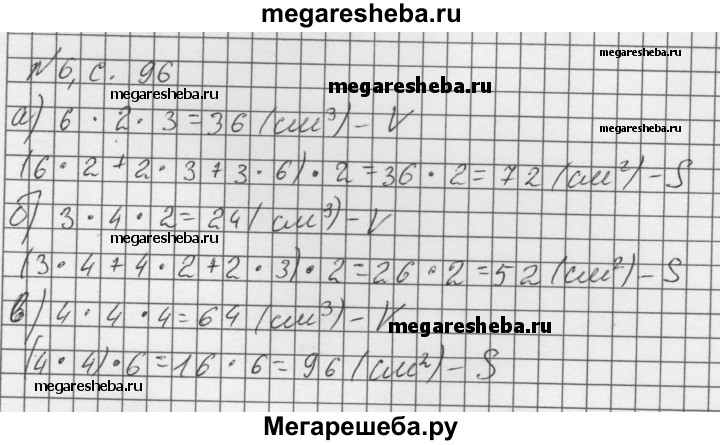 megaresheba.ru
megaresheba.ru
№6, с. 96
megaresheba.ru
megaresheba.ru
а) 6 · 2 · 3 = 36 (см³) – V
megaresheba.ru
(6 · 2 + 2 · 3 + 3 · 6) · 2 = 36 · 2 = 72 (см²) – S
б) 3 · 4 · 2 = 24 (см³) – V
megaresheba.ru
(3 · 4 + 4 · 2 + 2 · 3) · 2 = 26 · 2 = 52 (см²) – S
в) 4 · 4 · 4 = 64 (см³) – V
megaresheba.ru
(4 · 4) · 6 = 16 · 6 = 96 (см²) – S
megaresheba.ru
Мегарешеба.ру